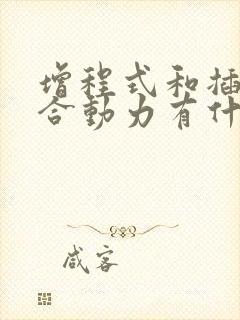 增程式和插
合动力有什
咸客